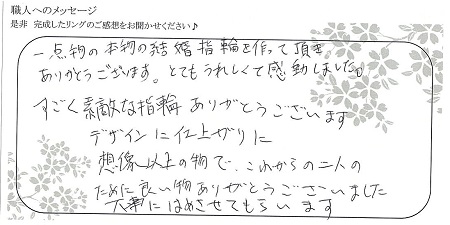 職人へのメッセージ
是非 完成したリングのご感想をお聞かせください♪
一点物の本物の結婚指輪を作って頂き
ありがとうございます。とてもうれしくて感動しました。
すごく素敵な指輪ありがとうございます
デザインに仕上がりに
想像以上の物で、これからの二人の
ために良い物ありがとうございました
大事にはめさせてもらいます